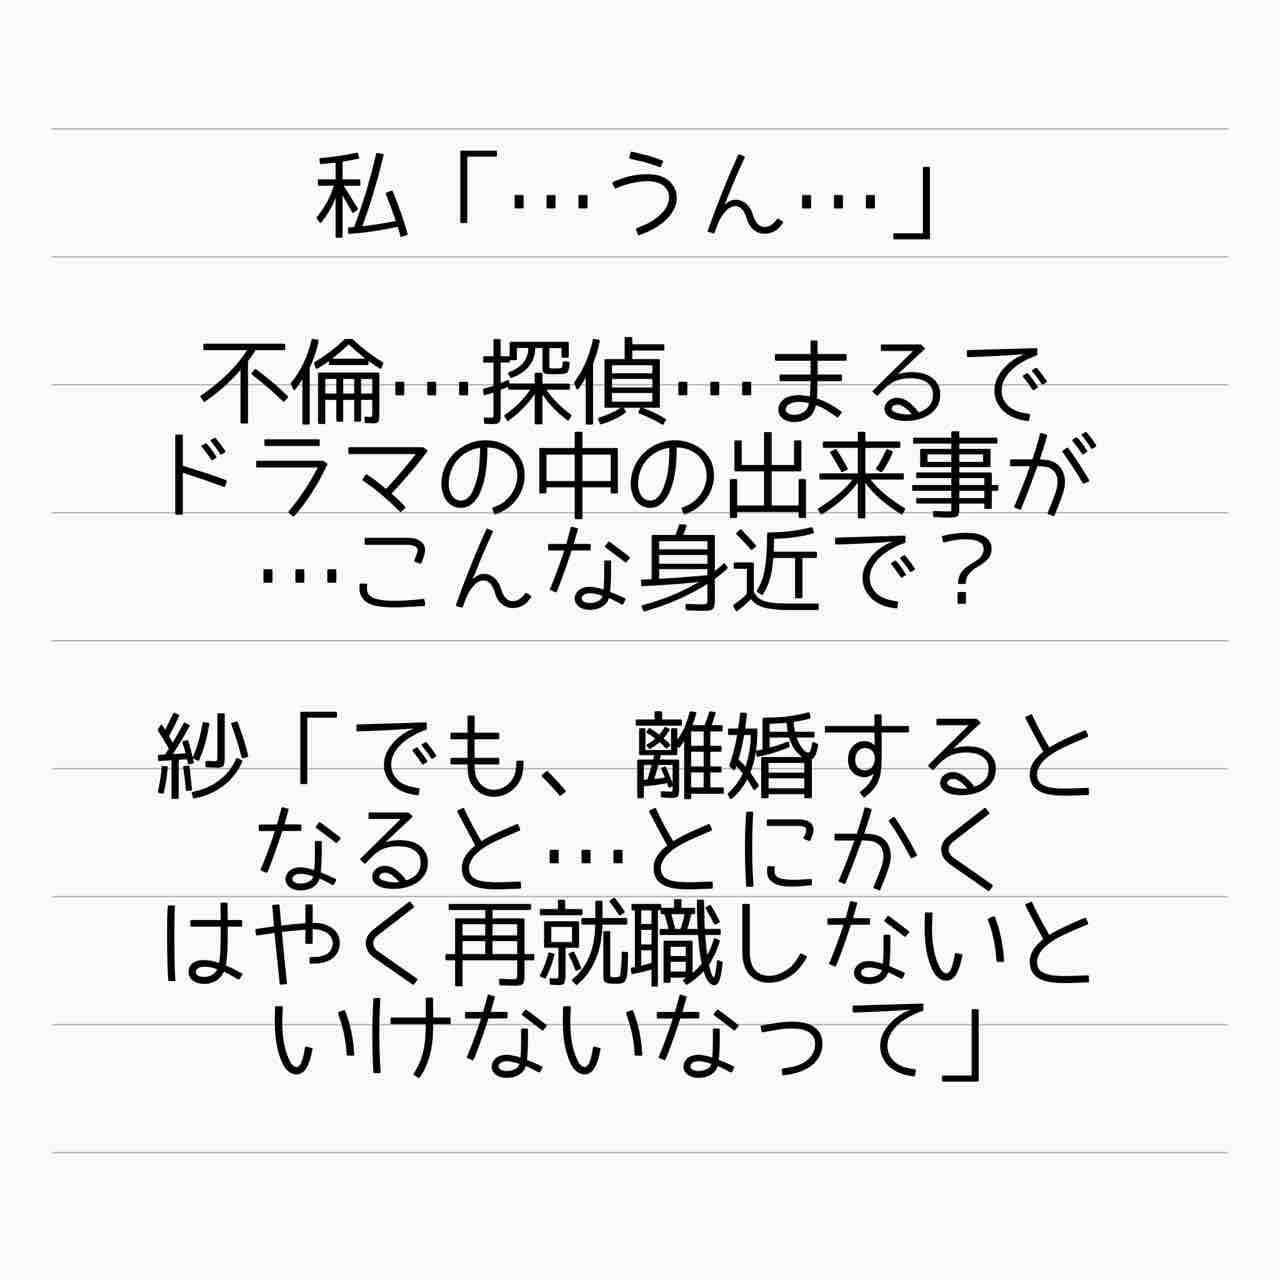 私「…うん…」
不倫…探偵…まるで
ドラマの中の出来事が
…こんな身近で？
紗「でも、離婚すると
なると…とにかく
はやく再就職しないと
いけないなって」